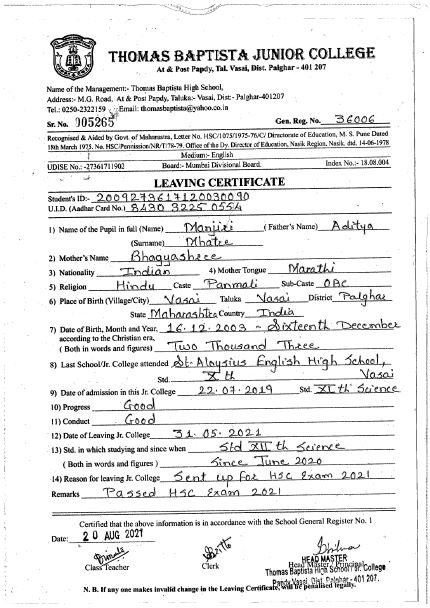 THOMAS BAPTISTA JUNIOR COLLEGE
At & Post Papdy, Tal. Vasai, Dist. Palghar - 401 207
Name of the Management:- Thomas Baptista High School,
Address:- M.G. Road, At & Post Papdy, Taluka:- Vasai, Dist:- Palghar-401207
Tel.:0250-2322159 Email: thomasbaptista@yahoo.co.in
Sr. No. 005265 Gen. Reg. No. 36006
Recognised & Aided by Govt. of Maharastra, Letter No. HSC/1075/1975-76/C/ Directorate of Education, M. S. Pune Dated
18th March 1975. No. HSC/Pennission/NR/T/78-79. Office of the Dy. Director of Education, Nasik Region, Nasik. dtd. 14-06-1978
Medium:- English
UDISE No.: -27361711902 Board:- Mumbai Divisional Board. Index No.:- 18.08.004
LEAVING CERTIFICATE
Student's ID:- 2009273617120030090
U.I.D. (Aadhar Card No.) 8430 3225 0554
1) Name of the Pupil in full (Name) Manjiri ( Father's Name) Aditya
(Surname) Mhatre
2) Mother's Name Bhagyashree
3) Nationality Indian 4) Mother Tongue Marathi
5) Religion Hindu Caste Panmali Sub-Caste OBC
6) Place of Birth (Village/City) Vasai Taluka Vasai District Palghar
State Maharashtra Country India
7) Date of Birth, Month and Year, 16.12.2003 - Sixteenth December
according to the Christian era,
( Both in words and figures) Two Thousand Three
8) Last School/Jr. College attended St. Aloysius English High School,
Std. Xth Vasai
9) Date of admission in this Jr. College 22.07.2019 Std. XIth Science
10) Progress Good
11) Conduct Good
12) Date of Leaving Jr. College 31.05.2021
13) Std. in which studying and since when Std XII th Science
( Both in words and figures ) Since June 2020
14) Reason for leaving Jr. College Sent up for HSC Exam 2021
Remarks Passed HSC Exam 2021
Certified that the above information is in accordance with the School General Register No. 1
Date: 20 AUG 2021
Class Teacher Clerk Head Master / Principal
HEAD MASTER
Thomas Baptista High School / Jr. College
Papdy Vasai, Dist. Palghar - 401 207.
N. B. If any one makes invalid change in the Leaving Certificate, will be penalised legally.